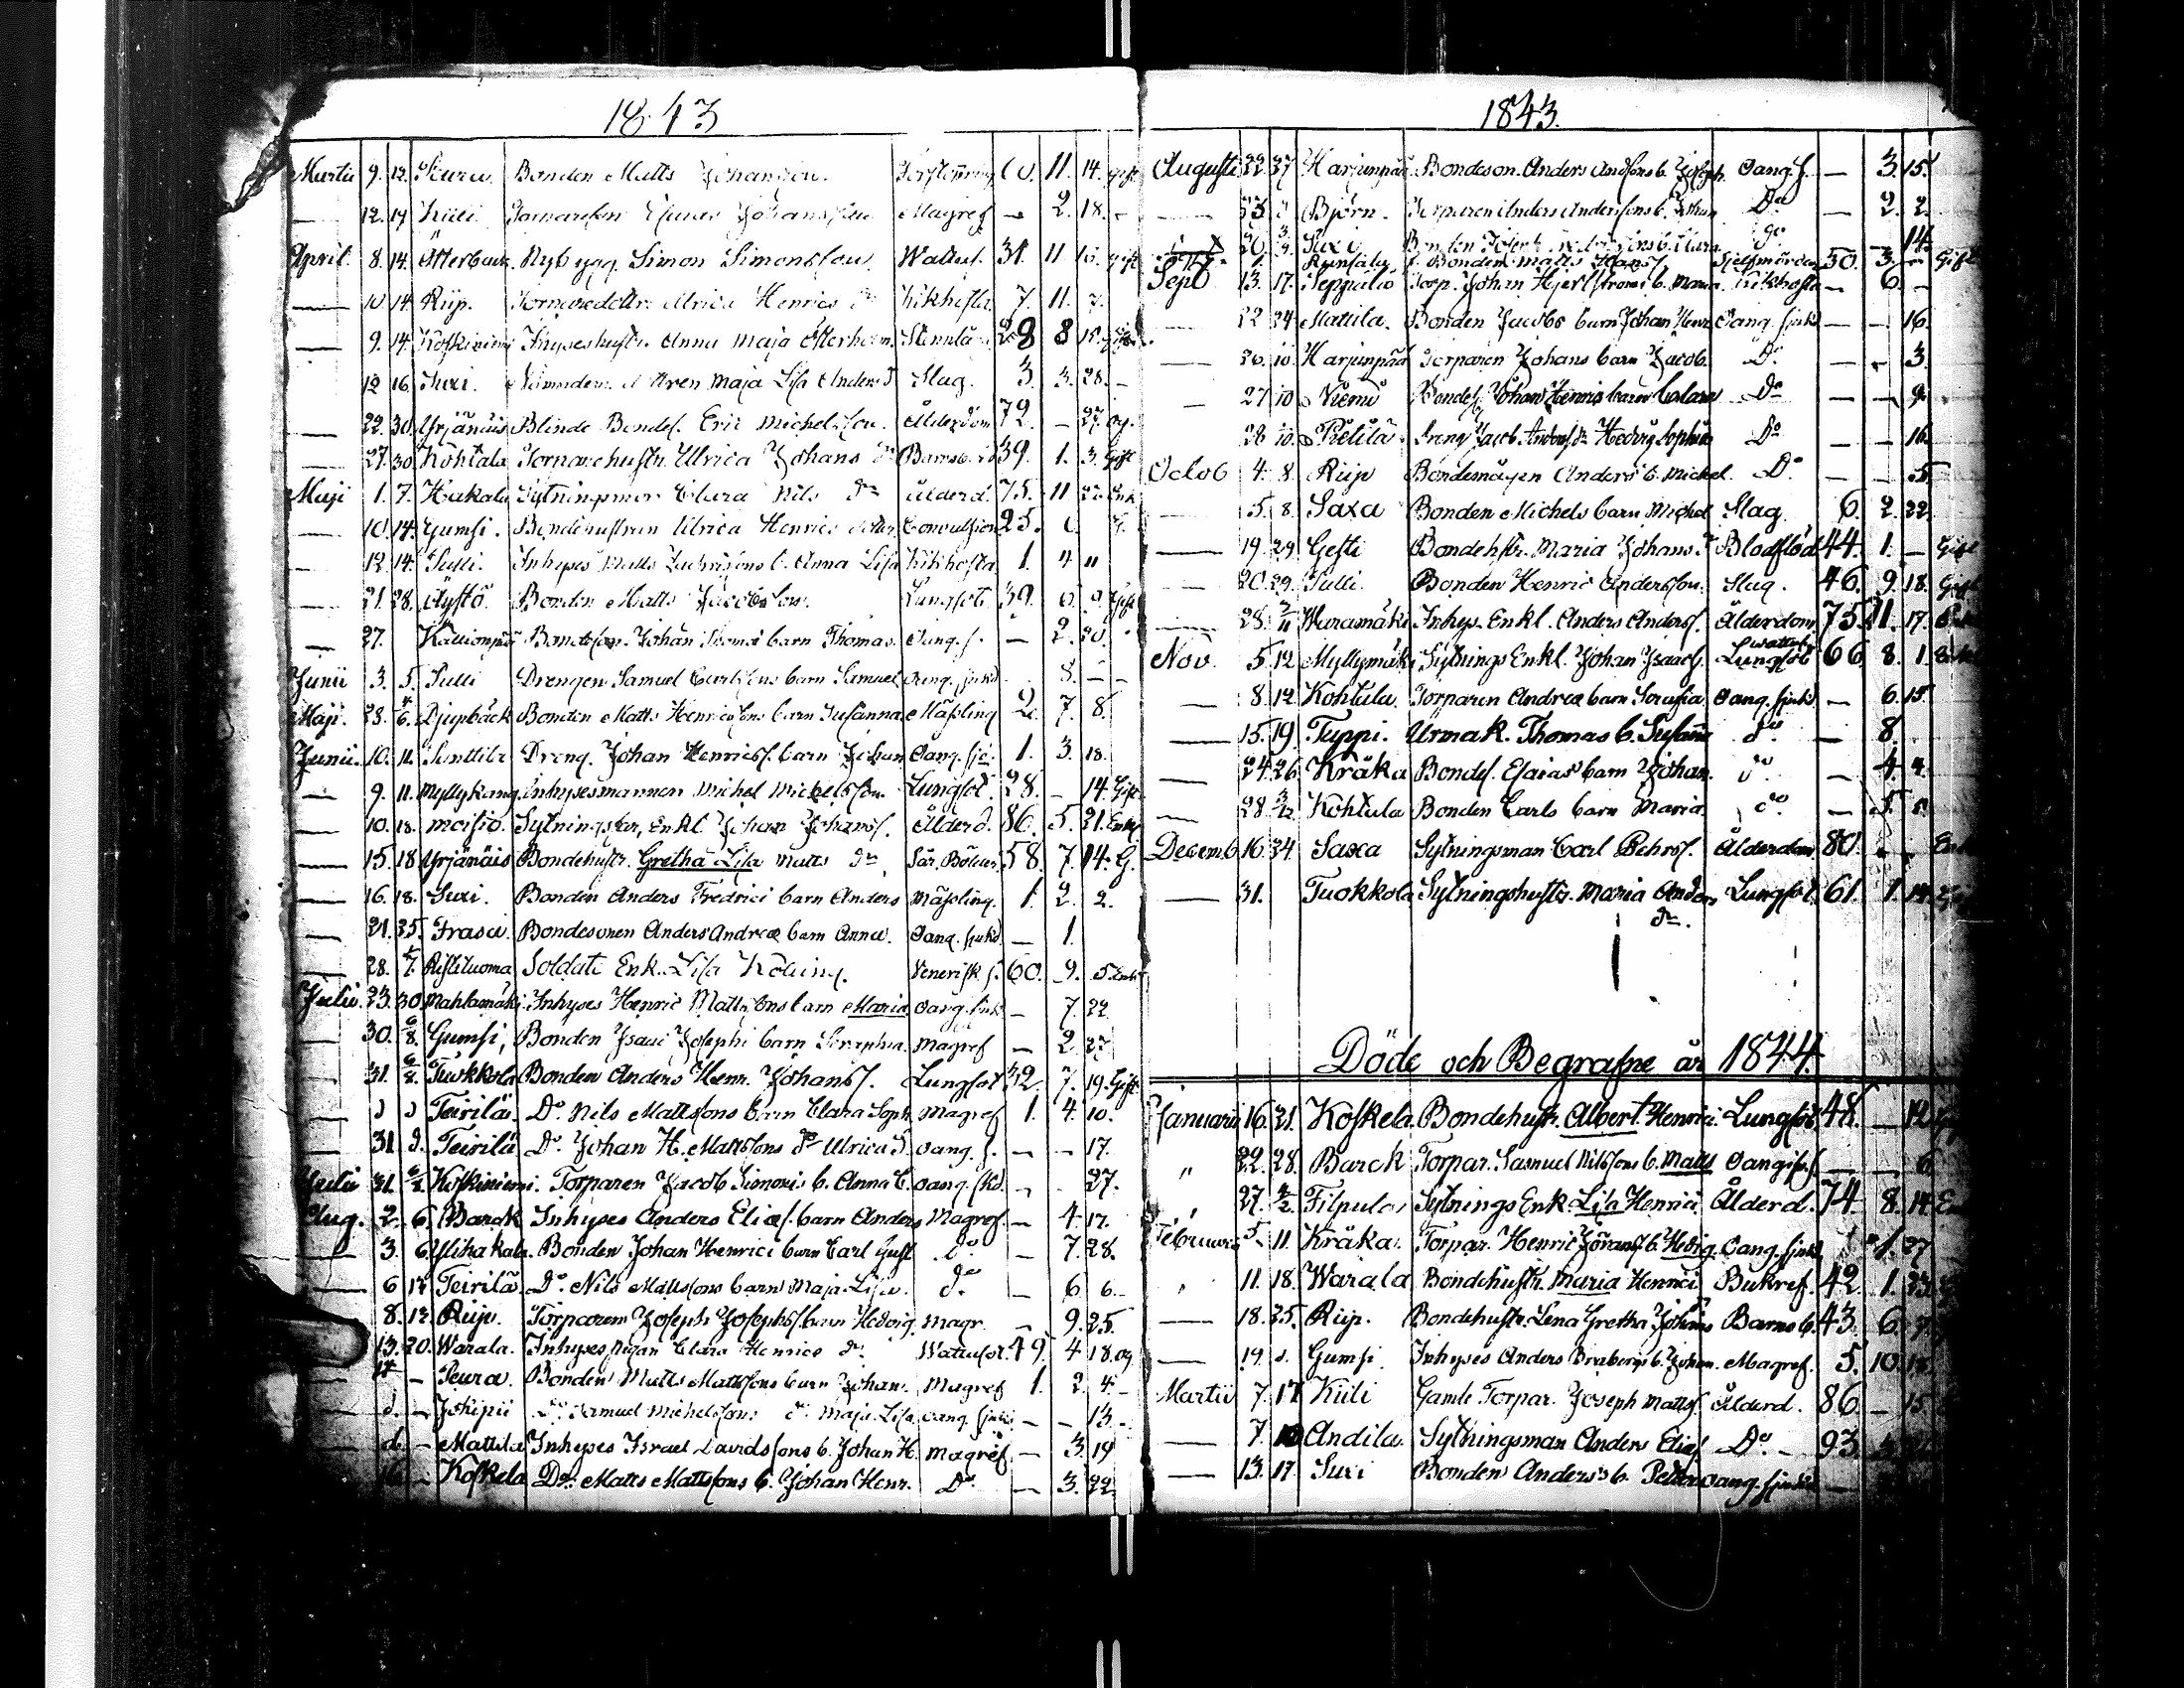 1843
Martii 9. 12. Peura. Bonden Matts Johansson. 11. 14. Gift
— 12. 17 Kiili Johansson Magref — 2. 18. —
April 8. 14. Nybygg. Simon Simonsson. Wattus. 31. 11 Gift
— 10 14. Riip. Ulrica Henrics dr Kikhosta 7. 11. 7.
— 9. 14. Koskiniemi Inhyseshustr. Anna Maja 28 8 15.
— 12 16. Luxi. Maja Lisa Anders d Slag. 3. 3. 28. —
— 22. 30. Yrjänäis Blinde Bondes. Eric Michelsson. Ålderdom 72. — 27. og.
— 27. 30 Kohtala Torparehustr. Ulrica Johans dr Barnsb. 39. 1. 3. Gift
Maji 1. 7. Hakala Sytningsmor Clara Nils dr ålderd. 75. 11 22. Enk
— 10. 14. Gumsi. Bondehustrun Ulrica Henrics dotter Convulsion 25.
— 12. 14. Pulli. Inhyses Matts b. Anna Lisa Kikhosta 1. 4 11
— 21. 28. Äystö. Bonden Matts Jacobsson. Lungsot 39. 6. 9. Gift
— 27. Kalliompää Bondeson. Johan barn Thomas. Oang. s. — 2. 20.
Junii 3. 5. Pulli Drengen Samuel Carlssons barn Samuel Oang. sjukd 8. — —
Maji. 28. 4/6. Djupbäck Bonden Matts Henricssons barn Susanna Mässling 2. 7. 8.
Junii. 10. 11. Dreng. Johan Henricss. barn Johan Oang. sj. 1. 3. 18.
— 9. 11. Myllykang. Inhysesmannen Michel Michelsson. Lungsot. 28. — 14. Gift
— 10. 18. Moisio. Sytningsfar, Enkl. Johan Johanss. Ålderd. 86. 5. 21. Enkl
— 15. 18 Yrjänäis Bondehustr. Gretha Lisa Matts dr, 58. 7. 14. G.
— 16. 18. Luxi. Bonden Anders Fredrici barn Anders Mässling. 1. 2. 2.
— 21. 25. Frasa. Bondesonen Anders Andreæ barn Anna. Oang. sjukd. — 1.
— 28. 2/7. Ristiluoma Soldats Enk. Lisa Venerisk s. 60. 9. 5. Enk
Julii. 23. 30. Mahlamäki. Inhyses Henric Mattssons barn Maria oang. sjuk — 7. 22.
30. 6/8. Gumsi, Bonden Isaac Josephi barn Seraphia. Magref — 2. 27.
— 31. 6/8. Tuokkola Bonden Anders Henr. Johanss. Lungsot 32. 7. 19. Gift
— d d Teirilä. Do. Nils Mattssons barn Clara Soph. Magref 1. 4. 10.
— 31 d. Teirilä Do Johan H. Mattssons do Ulrica S. oang. s. — — 17.
Julii 31. 6/8. Koskiniemi. Torparen Jacob Simonis b. Anna C. oang. skd. — 27.
Aug. 2. 6. Barck Inhyses Anders Eliæs. barn Anders Magref. — 4. 17.
— 3. 6. Ylihakala. Bonden Johan Henrici barn Carl Gust do — 7. 28.
— 6 13. Teirilä Do. Nils Mattssons barn Maja Lisa. do. — 6 6. —
8. 13. Riip. Torparen Josephs Josephss. barn Hedvig. magr. — 9. 25.
13. 20. Warala. Inhyses pigan Clara Henrics dr. Wattusot. 49. 4 18. og
14 — Peura. Bonden Matts Mattssons barn Johan. Magref 1. 2 4. —
d. — Jokipii Do. Samuel Michelssons do. Maja Lisa. oang. sjukd. — — 13. —
d. — Mattila Inhyses Israel Davidssons b. Johan H. magref. — 3. 19
16. — Koskela Do. Matts Mattssons b. Johan Henr. Do. — 3. 22.
1843.
Augusti 22 27 Harjunpää Bondeson Anders Andssons b. Joseph. Oang. s. — 3. 15.
— 23 Björn. Torparen Anders Anderssons b. Johan Do — 2. 2.
20 3/9. Luxi Bonden b. Clara. do 14.
Sept Bonden Matts Hanss. Sjelfmördare 50. 3. — Gift
13. 17. Seppälä Torp. Johan Hjertströms b. Maria. Kikhosta — 6. —
— 22 24 Mattila. Bonden Jacobs barn Johan Henr. Oang. sjukd — — 16.
— 26. 10. Harjunpää Torparen Johans barn Jacob. Do. — — 3.
— 27 10 Niemi Bondes. Johan Henrics barn Do — — 9.
28 10. Pielilä Dreng Jacob Hedvig Sophia Do — — 16.
Octob 4. 8. Riip Bondemågen Anders b. Michel. Do. — — 5.
— 5. 8. Saxa Bonden Michels barn Michel Slag. 6. 2. 22.
— 19 29 Gesti Bondehstr. Maria Johans d Blodflöd 44. 1. — Gift
— 20. 29. Pulli. Bonden Henric Andersson. Slag. 46. 9. 18. Gift
— 28. 5/11 Wuramäki Inhys. Enkl. Anders Anders. Ålderdom 75. 11. 17.
Nov. 5. 12. Myllymäki Sytnings Enkl. Johan Isaacs. Lungsot 66. 8. 1.
— 8. 12. Kohtala. Torparen Andreæ barn Serafia. Oang. sjukd. — 6. 15.
— 15. 19. Tuppi. Urmak. Thomas b. Susanna do. — 8.
— 24. 26. Kråka Bondes. Esaias barn Johan. do — 4. 4.
— 28 3/12 Kohtala Bonden Carls barn Maria. do. — 5. 8.
Decemb. 16. 24. Saxa Sytningsman Carl Pehrss. Ålderdom 80. —
— 31. Tuokkola Sytningshustr. Maria Anders dr. Lungsot. 61. 1. 14.
Döde och Begrafne år 1844.
Januarii 16. 21. Koskela. Bondehustr. Albert. Henrici. Lungsot. 48. — 12
" 22. 28. Barck Torpar. Samuel Nilssons b. Matts — — 6
27. 4/2. Filpula, Sytnings Enk Lisa Henrici Ålderd. 74. 8. 14.
Februarii 5. 11. Kråka. Torpar. Henric Jöranss b. Hedvig. Oang. sjukd 1. 27
" 11. 18. Warala Bondehustr. Maria Henrici Bukref. 42. 1. 23.
— 18. 25. Riip. Bondehustr. Lena Gretha Johans Barnsb. 43. 6. 7.
— 19. d. Gumsi. Inhyses Anders b. Johan. Magref. 5. 10.
Martii 7. 17 Kiili Gamle Torpar. Joseph Matts. Ålderd. 86. — 15
— 7. 10 Andila. Sytningsman Anders Elias Do. — 93.
— 13. 17 Luxi Bonden Anders's b. Petter oang. sjukd —